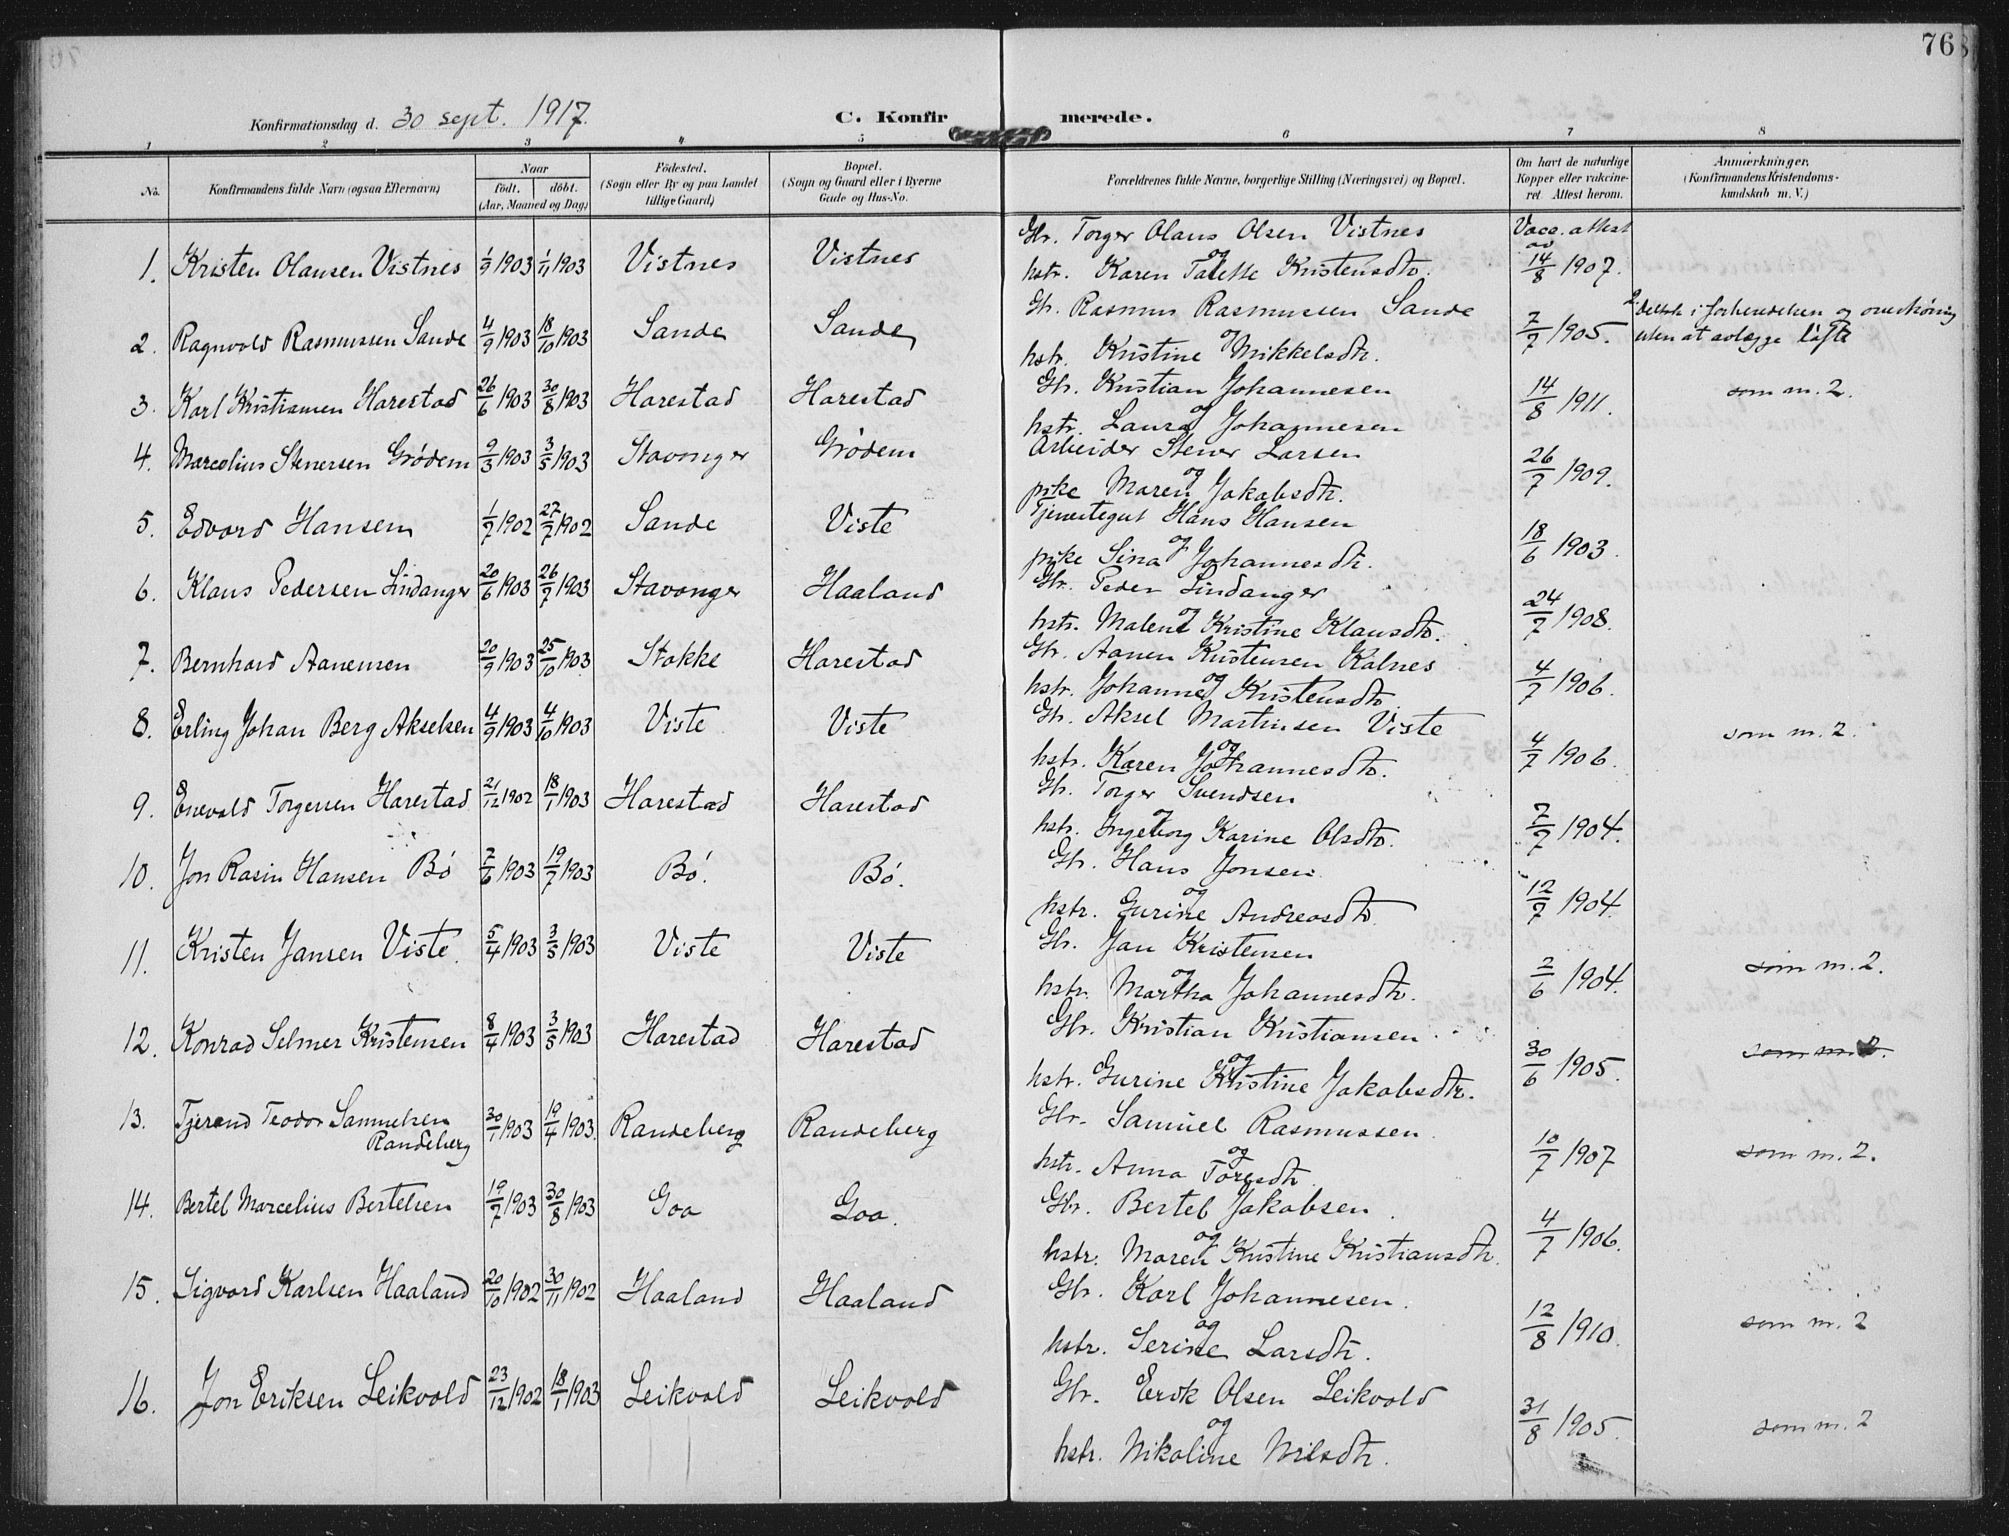 76
Konfirmationsdag d. 30 sept. 1917.
C. Konfirmerede.
1 2 3 4 5 6 7 8
No. Konfirmandens fulde Navn (ogsaa Efternavn) Naar født. døbt. (Aar, Maaned og Dag) Fødested. (Sogn eller By og paa Landet tillige Gaard) Bopæl. (Sogn og Gaard eller i Byerne Gade og Hus-No. Forældrenes fulde Navne, borgerlige Stilling (Næringsvei) og Bopæl. Om havt de naturlige Kopper eller vaccineret. Attest herom. Anmærkninger. (Konfirmandens Kristendomskundskab m. V.)
1. Kristen Olausen Vistnes 1/9 1903 1/11 1903 Vistnes Vistnes Gbr. Torger Olaus Olsen Vistnes og hstr. Karen Talette Kristensdtr. Vacc. attest av 14/8 1907.
2. Ragnvald Rasmussen Sande 4/9 1903 18/10 1903 Sande Sande Gbr. Rasmus Rasmussen Sande og hstr. Kristine Mikkelsdtr. 7/7 1905. 2. deltok i forberedelsen og overhøring uten at avlægge løfte
3. Karl Kristiansen Harestad 26/6 1903 30/8 1903 Harestad Harestad Gbr. Kristian Johannesen og hstr. Laura Johannesen 14/8 1911. som m. 2.
4. Marcelius Stenersen Grødem 9/3 1903 3/5 1903 Stavanger Grødem Arbeider Stener Larsen og pike Maren Jakobsdtr. 26/7 1909.
5. Edvard Hansen 1/7 1902 27/7 1902 Sande Viste Tjenestegut Hans Hansen og pike Sina Johannesdtr. 18/6 1903.
6. Klaus Pedersen Lindanger 20/6 1903 26/7 1903 Stavanger Haaland Gbr. Peder Lindanger og hstr. Malene Kristine Klausdtr. 24/7 1908.
7. Bernhard Aanensen 20/9 1903 25/10 1903. Stokke Harestad Gbr. Aanen Kristensen Kalnes og hstr. Johanne Kristensdtr. 4/7 1906.
8. Erling Johan Berg Akselsen 4/9 1903 4/10 1903 Viste Viste Gbr. Aksel Martinsen Viste og hstr. Karen Johannesdtr. 4/7 1906. som m. 2.
9. Enevald Torgersen Harestad 21/12 1902 18/1 1903 Harestad Harestad Gbr. Torger Svendsen og hstr. Ingeborg Karine Olsdtr. 7/7 1904.
10. Jon Rasin Hansen Bø 7/6 1903 19/7 1903 Bø. Bø. Gbr. Hans Jonsen og hstr. Gurine Andreasdtr. 12/7 1904.
11. Kristen Jansen Viste. 5/4 1903 3/5 1903 Viste Viste Gbr. Jan Kristensen og hstr. Martha Johannesdtr. 2/6 1904. som m. 2.
12. Konrad Selmer Kristensen 8/4 1903 3/5 1903 Harestad Harestad Gbr. Kristian Kristiansen og hstr. Gurine Kristine Jakobsdtr. 30/6 1905. som m. 2.
13. Tjerand Teodor Samuelsen Randeberg 30/1 1903 19/4 1903. Randeberg Randeberg Gbr. Samuel Rasmussen og hstr. Anna Toresdtr. 10/7 1907 som m. 2.
14. Bertel Marcelius Bertelsen 19/7 1903 30/8 1903 Goa Goa. Gbr. Bertel Jakobsen. og hstr. Maren Kristine Kristiansdtr. 4/7 1906.
15. Sigvard Karlsen Haaland 20/10 1902 30/11 1902 Haaland Haaland Gbr. Karl Johannesen. og hstr. Serine Larsdtr. 12/8 1910. som m. 2
16. Jon Eriksen Leikvold 23/12 1902 18/1 1903 Leikvold Leikvold Gbr. Erik Olsen Leikvold og hstr. Nikoline Nilsdtr. 31/8 1905. som m. 2